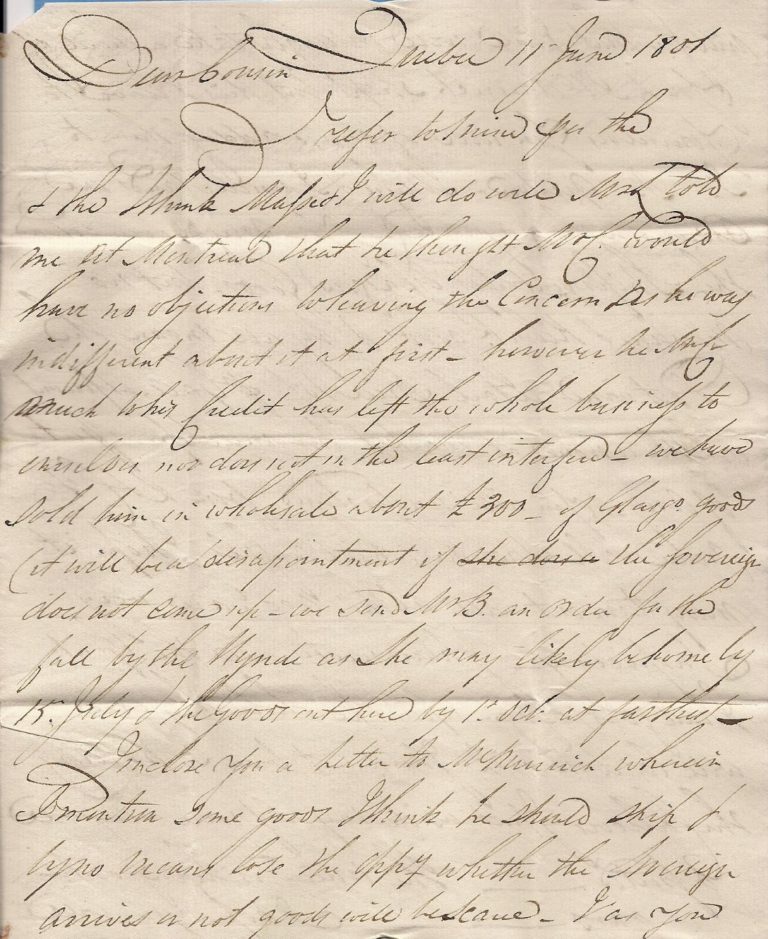 Dear Cousin Quebec 11 June 1801
I refer to mine per the
& the I think Masson & I will do well Mr L told
me at Montreal that he thought Mr C. would
have no objections to leaving the Concern as he was
indifferent about it at first - however he
much to his Credit has left the whole business to
ourselves nor does not in the least interfere - we have
sold him in wholesale about £300 - of Glasgo. goods
(it will be a disapointment if she does n the Sovereign
does not come up - we send Mr B. an order for the
fall by the as she may likely be home by
15 July & the Goods out here by 1st Oct. at farthest -
I inclose You a Letter to wherein
I mention some goods I think he should ship &
by no means lose the oppy whether the Sovereign
arrives or not goods will be scarce - I as You